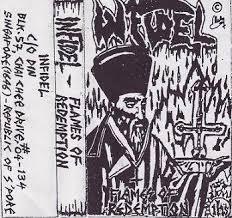 INFIDEL
C/O DIN
BLK. 57 CHAI CHEE DRIVE, #
04-134
REPUBLIC OF S'PORE
INFIDEL - FLAMES OF
REDEMPTION
©
INFIDEL
FLAMES OF
REDEMPTION